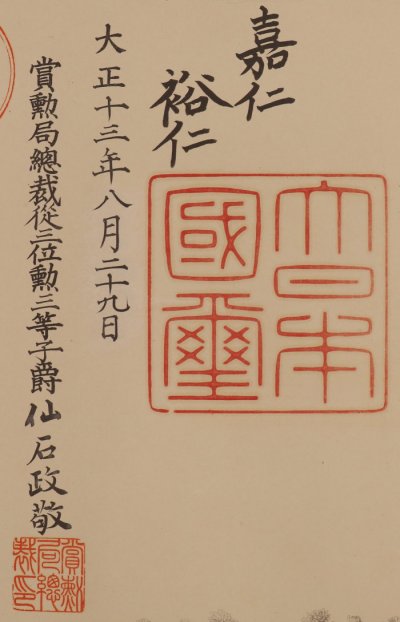 嘉仁
裕仁
大日本
國璽
大正十三年八月二十九日
賞勲局總裁從三位勲三等子爵仙石政敬
賞勲
局總
裁印